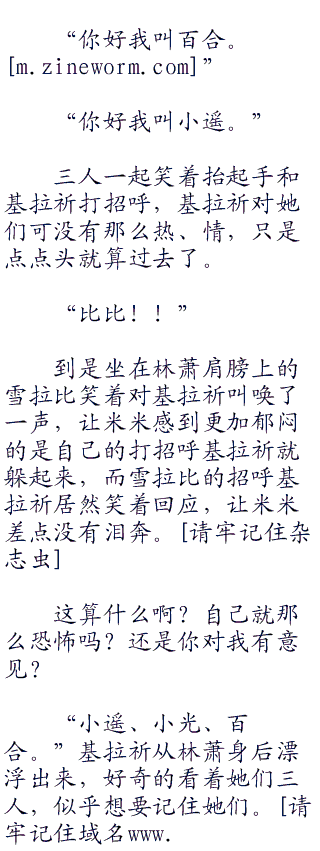 “你好我叫百合。
[m.zineworm.com]”
“你好我叫小遥。”
三人一起笑着抬起手和
基拉祈打招呼，基拉祈对她
们可没有那么热、情，只是
点点头就算过去了。
“比比！！”
到是坐在林萧肩膀上的
雪拉比笑着对基拉祈叫唤了
一声，让米米感到更加郁闷
的是自己的打招呼基拉祈就
躲起来，而雪拉比的招呼基
拉祈居然笑着回应，让米米
差点没有泪奔。[请牢记住杂
志虫]
这算什么啊？自己就那
么恐怖吗？还是你对我有意
见？
“小遥、小光、百
合。”基拉祈从林萧身后漂
浮出来，好奇的看着她们三
人，似乎想要记住她们。[请
牢记住域名www.